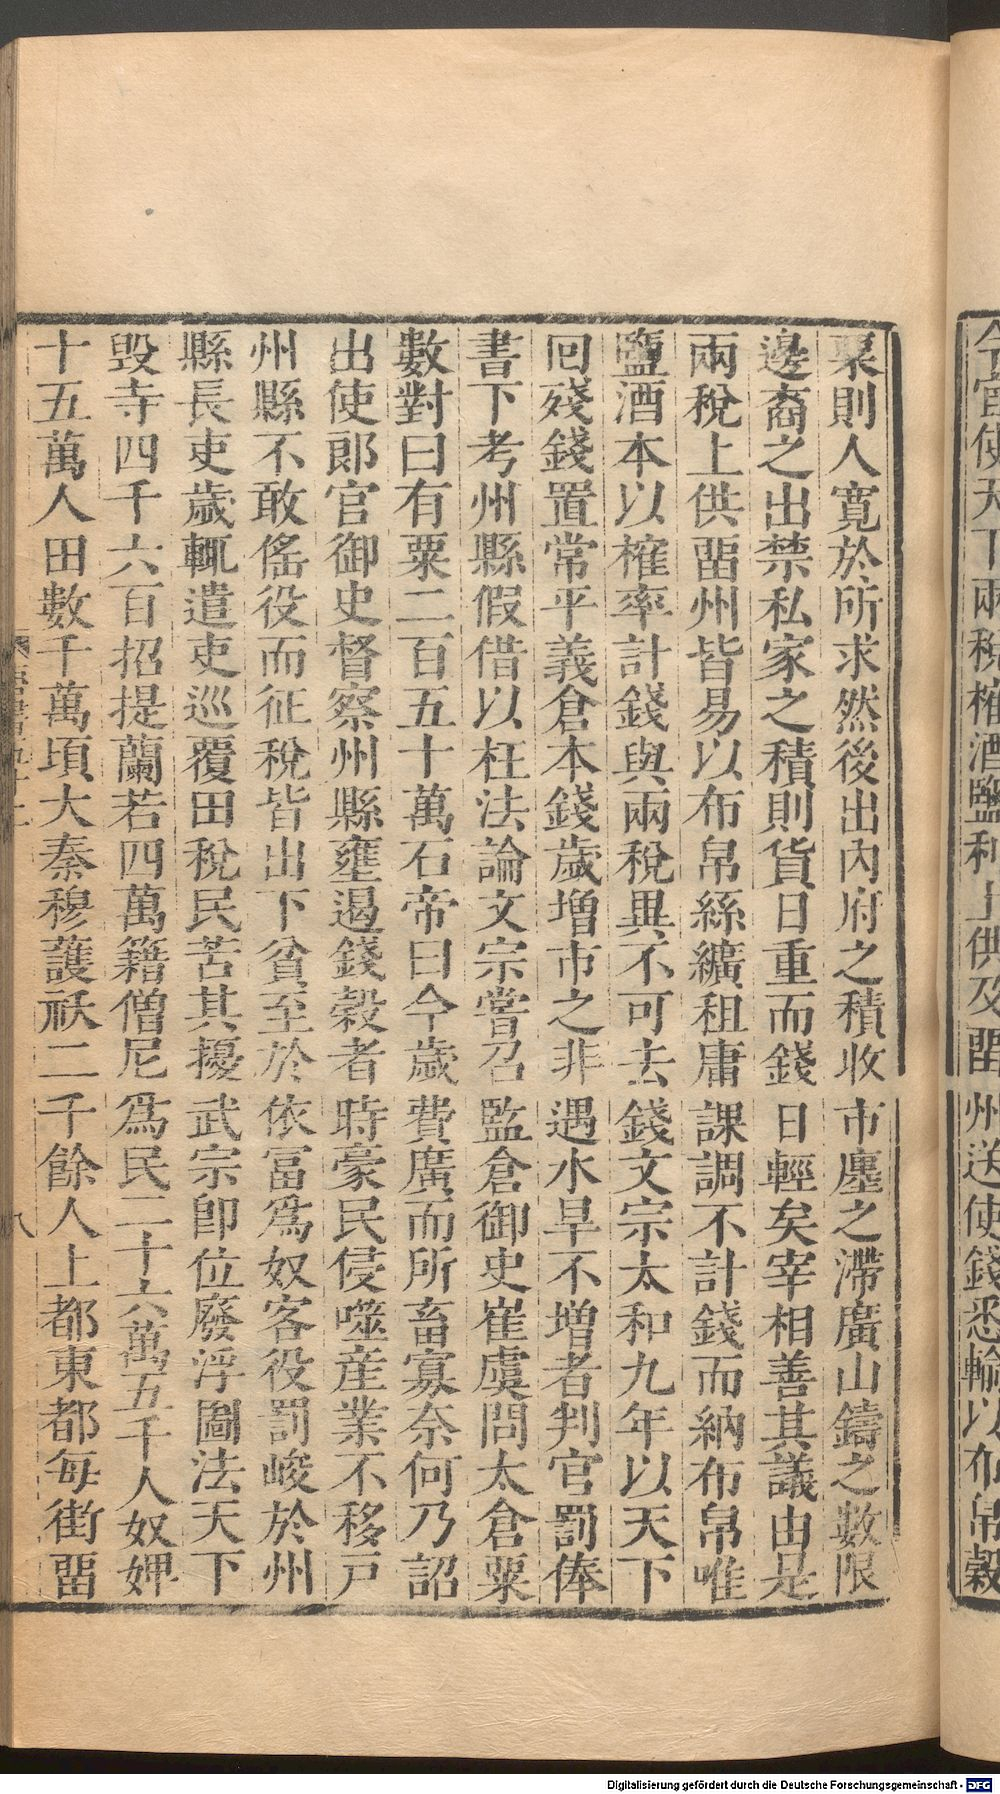 今宜使天下兩稅榷酒鹽利上供及畱州送使錢悉輸以布帛穀
粟則人寬於所求然後出內府之積收市廛之滯廣山鑄之數限
邊裔之出禁私家之積則貨日重而錢日輕矣宰相善其議由是
兩稅上供畱州皆易以布帛絲纊租庸課調不計錢而納布帛唯
鹽酒本以榷率計錢與兩稅異不可去錢文宗太和九年以天下
回殘錢置常平義倉本錢歲增市之非遇水旱不增者判官罰俸
書下考州縣假借以枉法論文宗嘗召監倉御史崔虞問太倉粟
數對曰有粟二百五十萬石帝曰今歲費廣而所畜寡奈何乃詔
出使郎官御史督察州縣壅遏錢穀者時豪民侵噬產業不移戶
州縣不敢傜役而征稅皆出下貧至於依富爲奴客役罰峻於州
縣長吏歲輒遣吏巡覆田稅民苦其擾武宗卽位廢浮圖法天下
毀寺四千六百招提蘭若四萬籍僧尼爲民二十六萬五千人奴婢
十五萬人田數千萬頃大秦穆護祆二千餘人上都東都每街畱
八
Digitalisierung gefördert durch die Deutsche Forschungsgemeinschaft - DFG